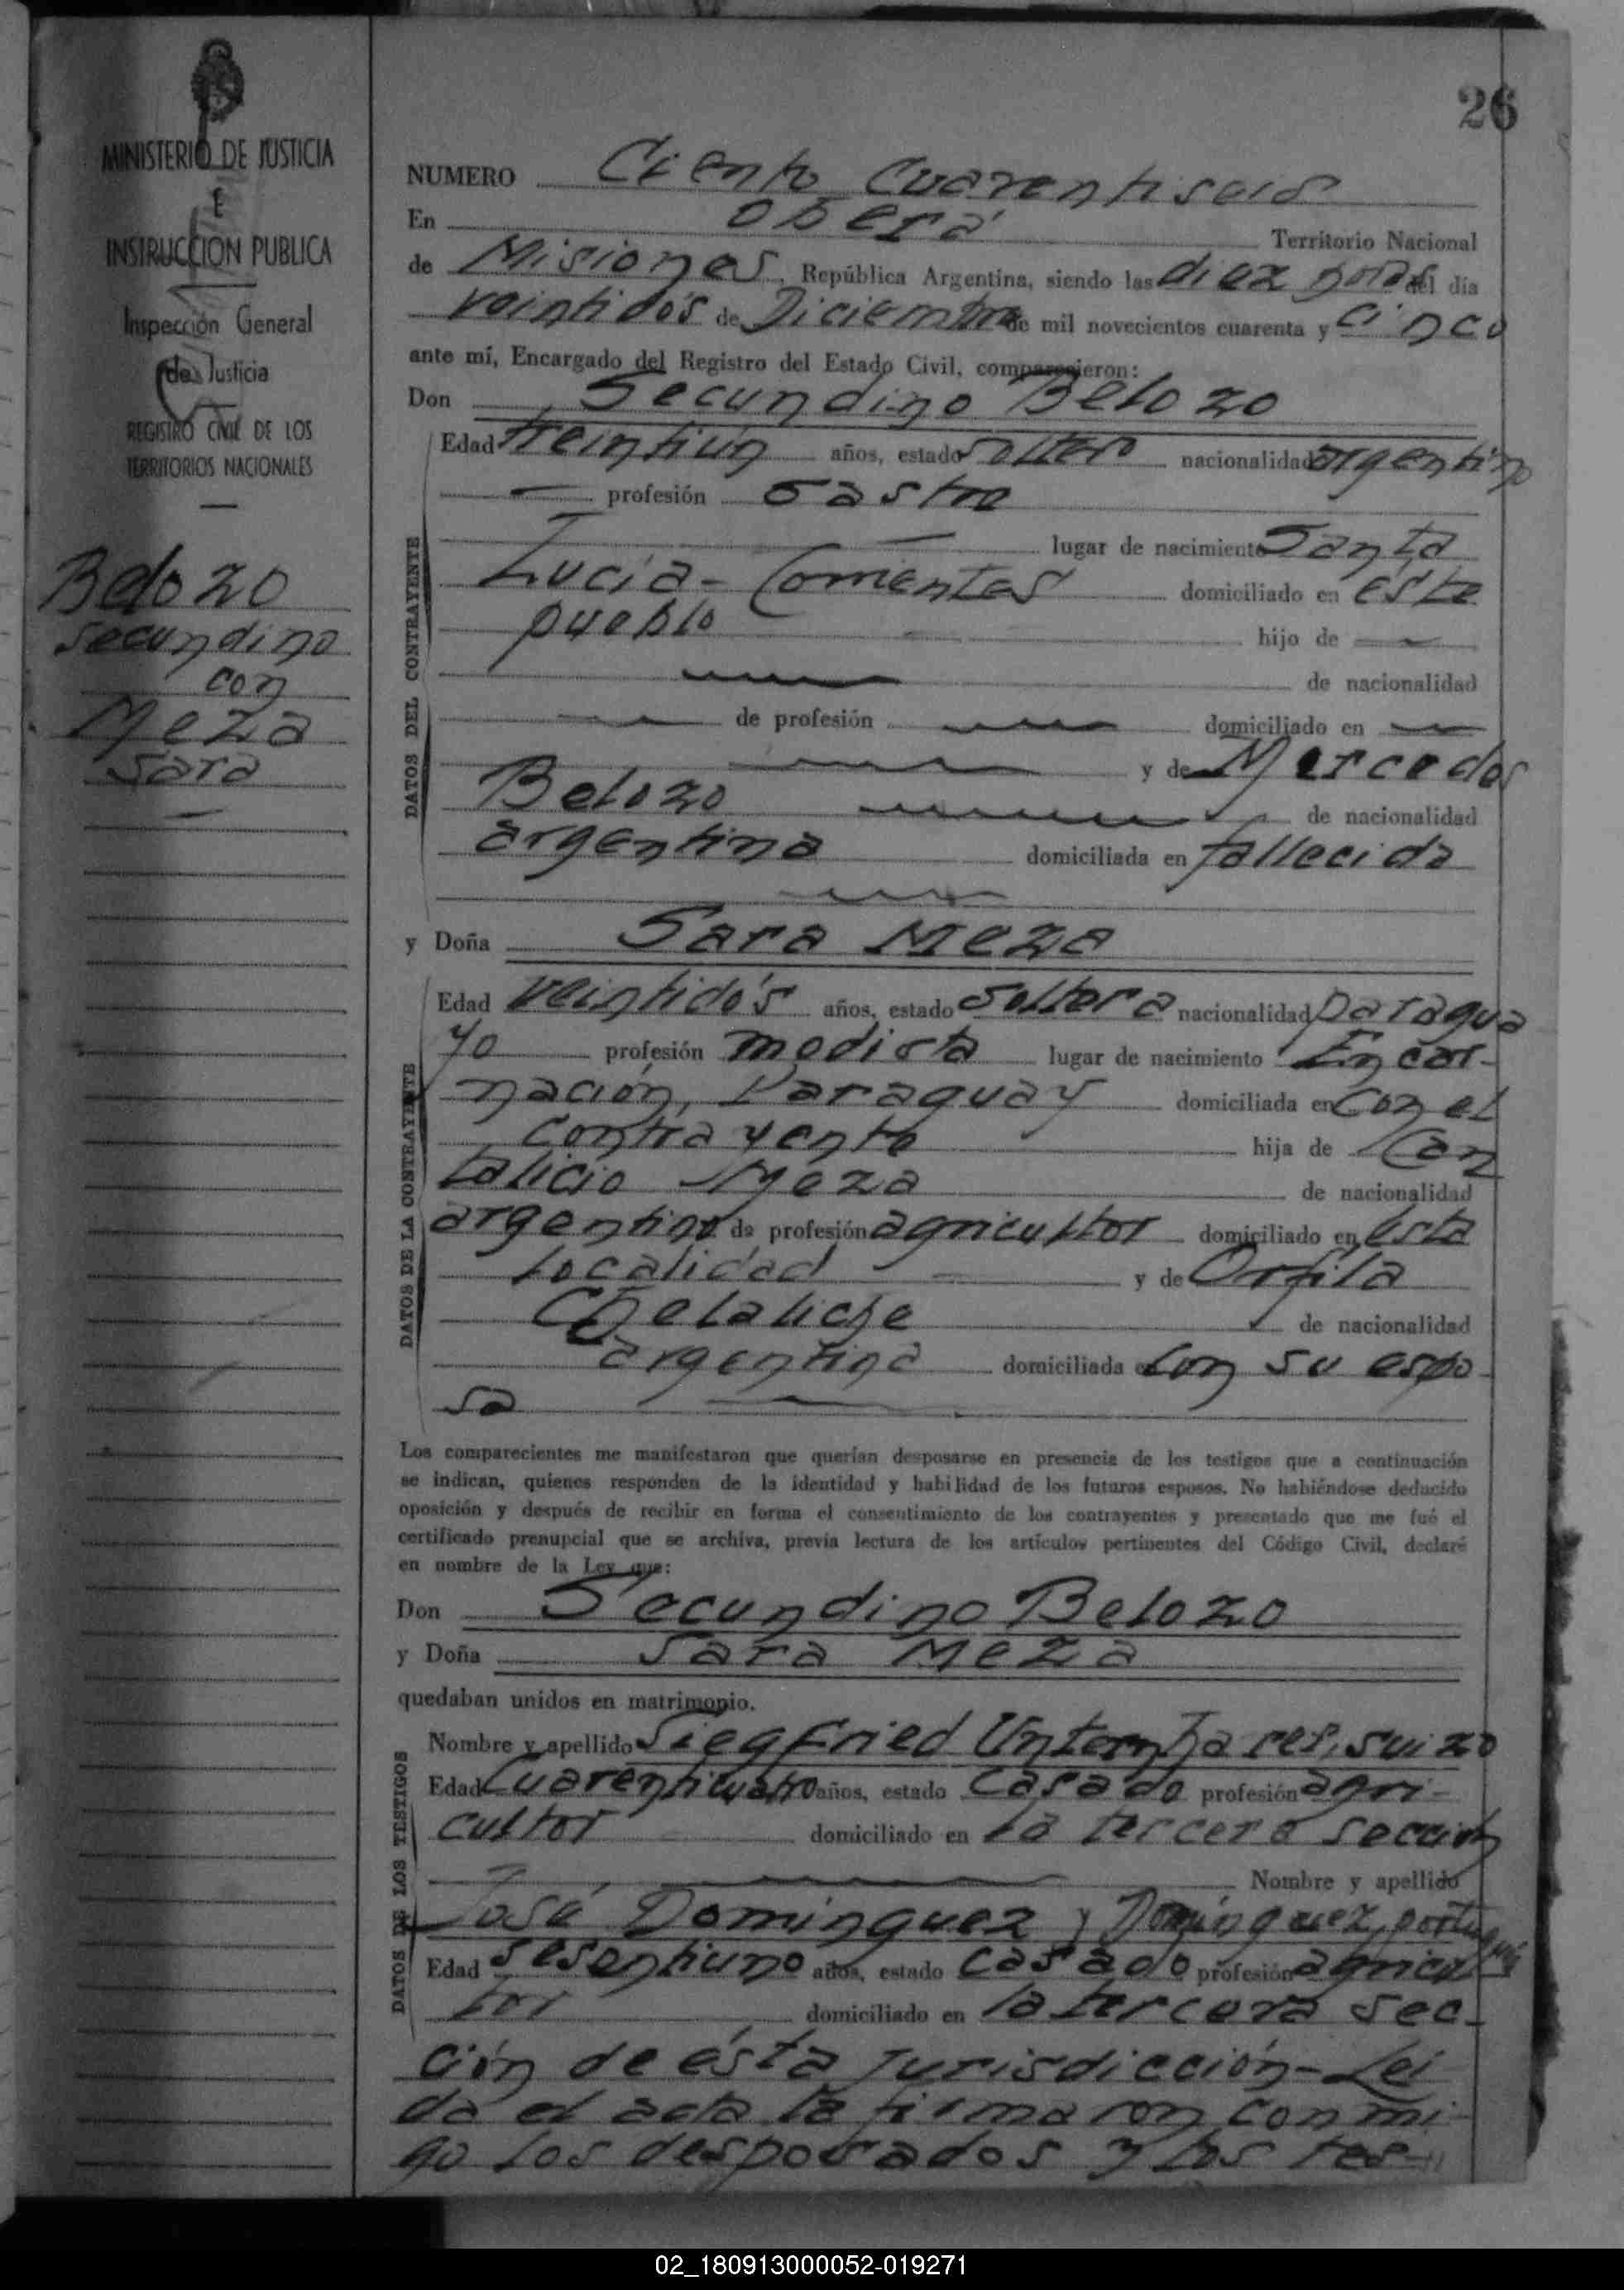 26
MINISTERIO DE JUSTICIA
E
INSTRUCCION PUBLICA
Inspección General
de Justicia
REGISTRO CIVIL DE LOS
TERRITORIOS NACIONALES
Belozo
Secundino
con
Meza
Sara
NUMERO Ciento Cuarentiseis
En Oberá Territorio Nacional
de Misiones, República Argentina, siendo las diez horas del día
veintidós de Diciembre de mil novecientos cuarenta y cinco
ante mí, Encargado del Registro del Estado Civil, comparecieron:
Don Secundino Belozo
DATOS DEL CONTRAYENTE
Edad treintiún años, estado soltero nacionalidad argentino
profesión sastre
lugar de nacimiento Santa
Lucia - Corrientes domiciliado en este
pueblo hijo de
de nacionalidad
de profesión domiciliado en
y de Mercedes
Belozo de nacionalidad
argentina domiciliada en fallecida
y Doña Sara Meza
DATOS DE LA CONTRAYENTE
Edad veintidós años, estado soltera nacionalidad paragua
yo profesión modista lugar de nacimiento Encar-
nación, Paraguay domiciliada en con el
contrayente hija de Can
talicio Meza de nacionalidad
argentino de profesión agricultor domiciliado en esta
localidad y de Orfila
Chelaliche de nacionalidad
argentina domiciliada en con su espo
so
Los comparecientes me manifestaron que querían desposarse en presencia de los testigos que a continuación
se indican, quienes responden de la identidad y habilidad de los futuros esposos. No habiéndose deducido
oposición y después de recibir en forma el consentimiento de los contrayentes y presentado que me fué el
certificado prenupcial que se archiva, previa lectura de los artículos pertinentes del Código Civil, declaré
en nombre de la Ley que:
Don Secundino Belozo
y Doña Sara Meza
quedaban unidos en matrimonio.
DATOS DE LOS TESTIGOS
Nombre y apellido Siegfried suizo
Edad Cuarenticuatro años, estado casado profesión agri-
cultor domiciliado en la tercera sección
Nombre y apellido
José Dominguez y Domínguez, portugués
Edad sesentiuno años, estado casado profesión agricul
tor domiciliado en la tercera sec-
ción de ésta Jurisdicción - Leí
da el acta la firmaron conmi-
go los desposados y los tes-
02_180913000052-019271